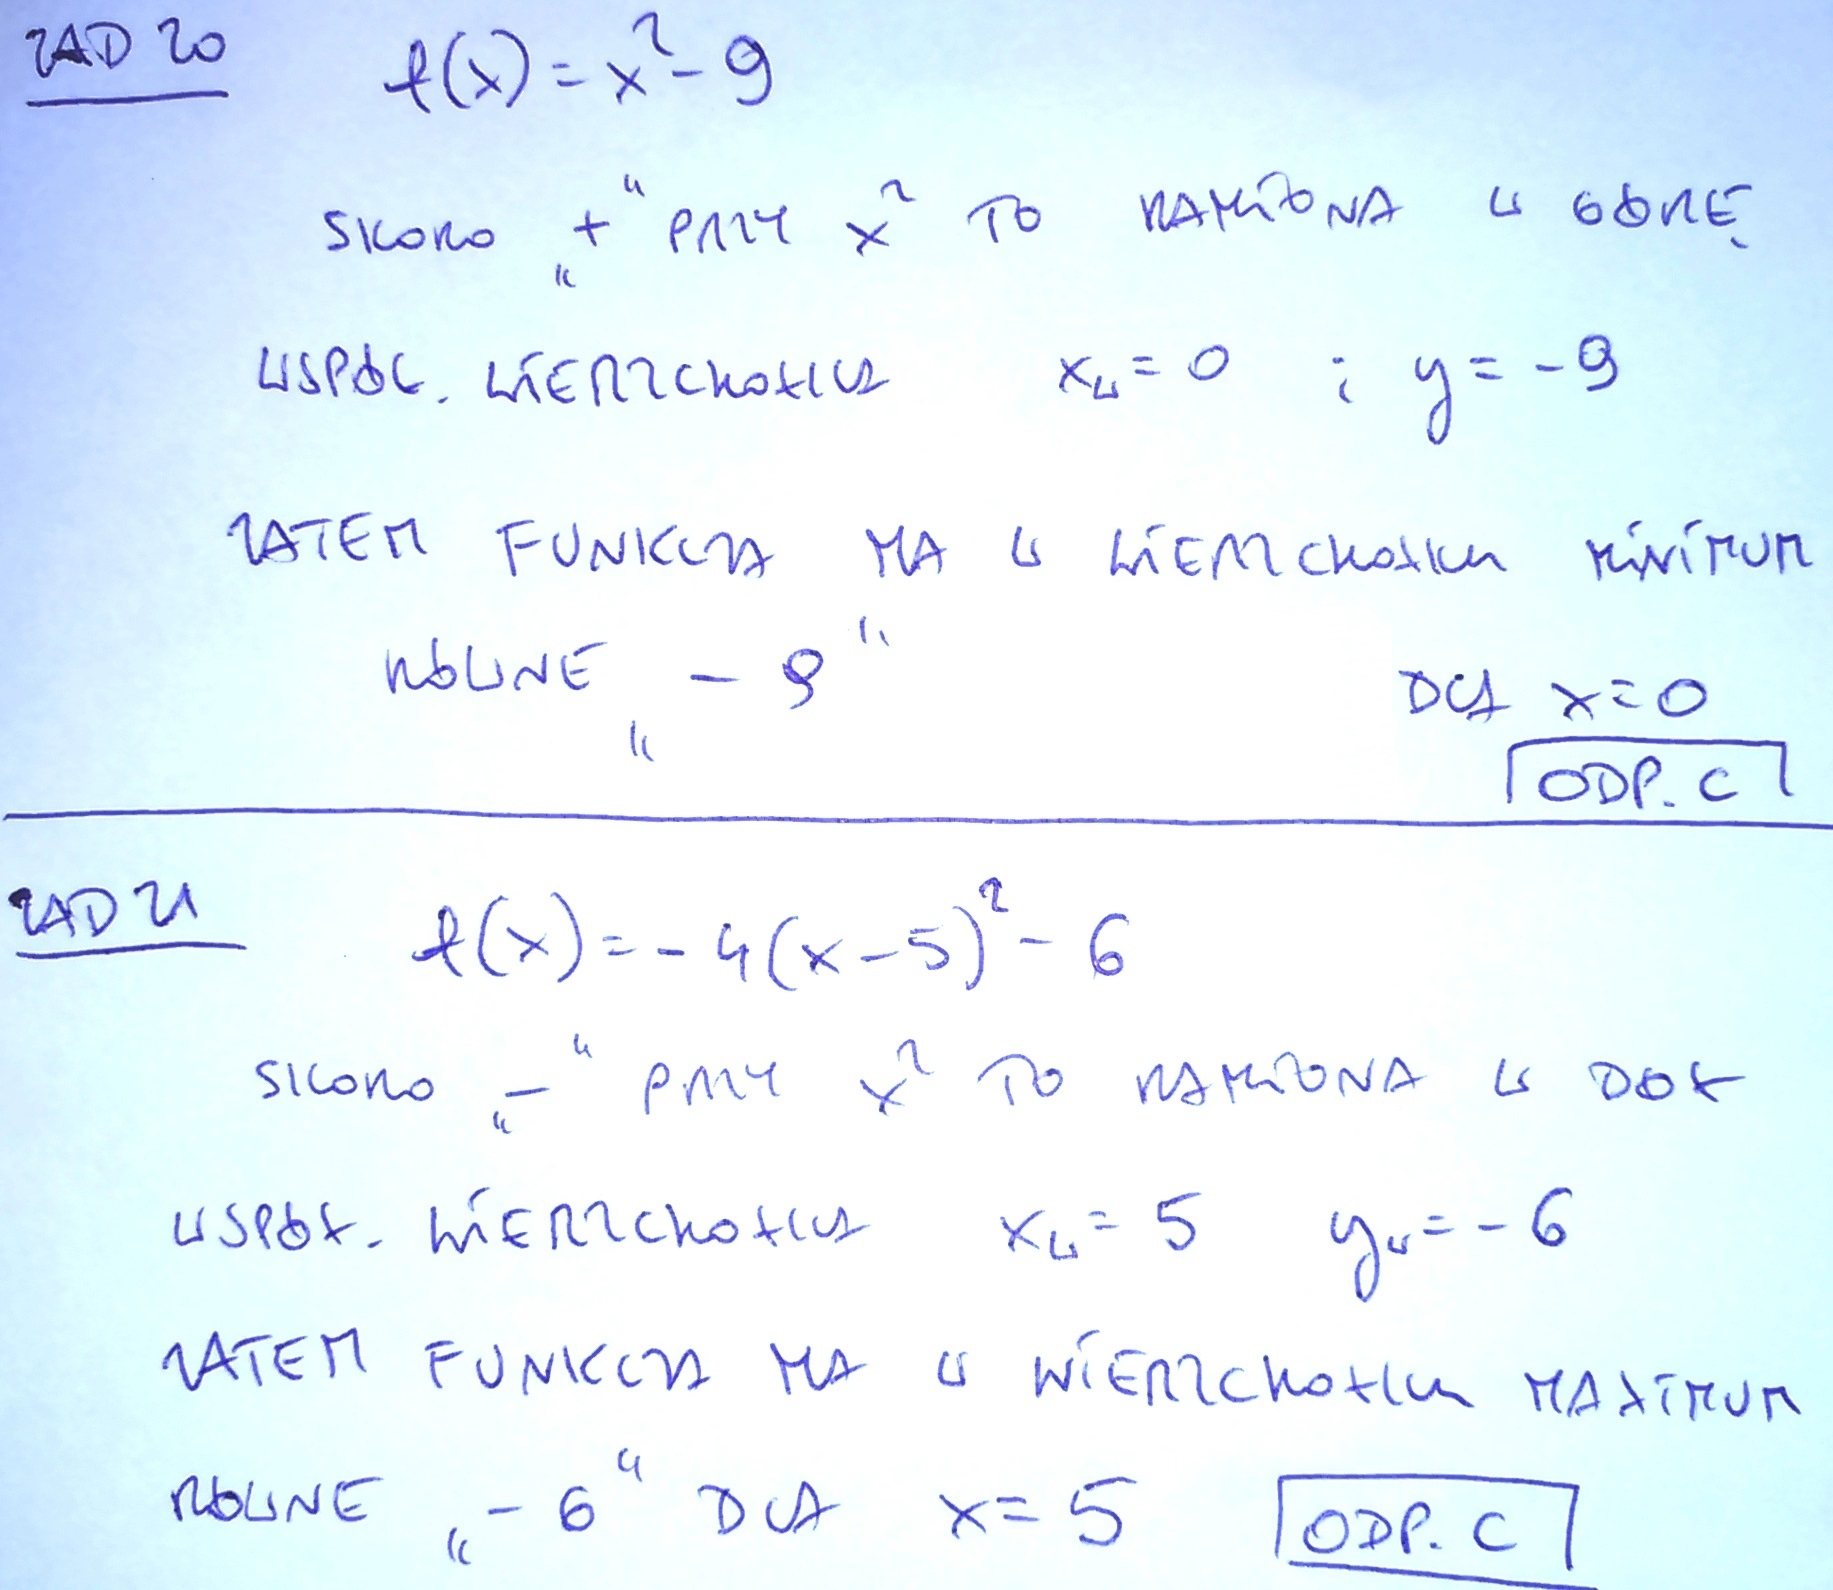 ZAD 20 f(x) = x² - 9
SKORO „+" PRZY x² TO RAMIONA W GÓRĘ
WSPÓŁ. WIERZCHOŁKA x_w = 0 i y = -9
ZATEM FUNKCJA MA W WIERZCHOŁKU MINIMUM
RÓWNE „-9" DLA x = 0
ODP. C
ZAD 21 f(x) = -4(x-5)² - 6
SKORO „-" PRZY x² TO RAMIONA W DÓŁ
WSPÓŁ. WIERZCHOŁKA x_w = 5 y_w = -6
ZATEM FUNKCJA MA W WIERZCHOŁKU MAXIMUM
RÓWNE „-6" DLA x = 5 ODP. C